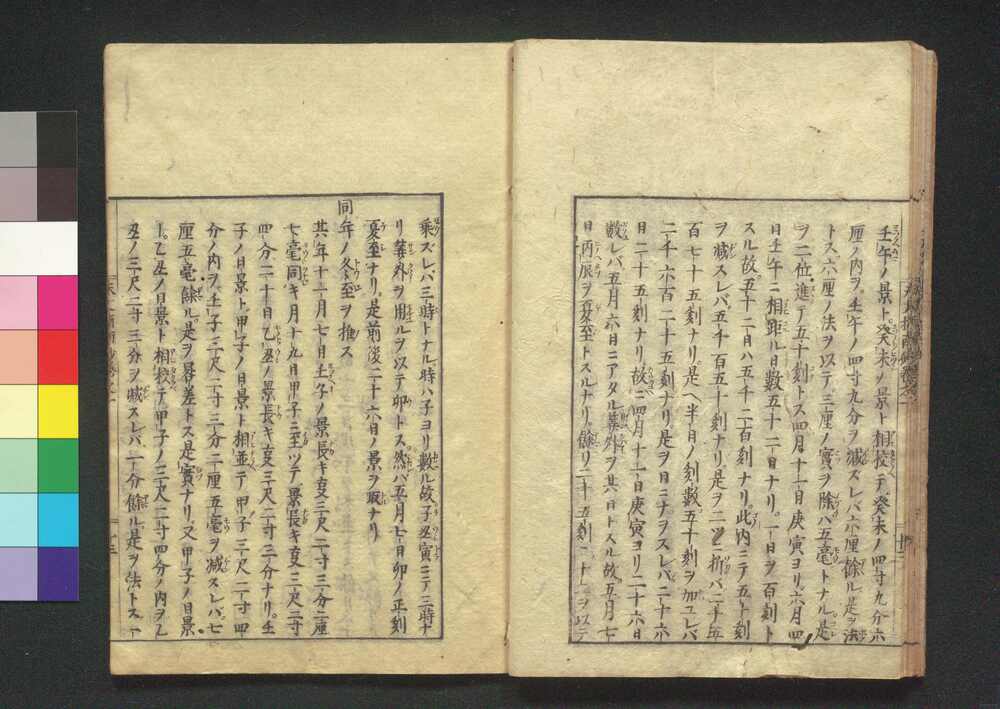 壬午ノ景ト癸未ノ景ト相校ヘテ癸未ノ四寸九分六
厘ノ内ヲ壬午ノ四寸九分ヲ減スレバ六厘餘ル是ヲ法
トス六厘ノ法ヲ以テ三厘ノ實ヲ除バ五毫トナル是
ヲ二位進テ五十刻トス四月十一日庚寅ヨリ六月四
日壬午ニ相距ル日數五十二日ナリ一日ヲ百刻ト
スル故五十二日ハ五千二百刻ナリ此内ニテ五十刻
ヲ減スレバ五千百五十刻ナリ是ヲ二ツニ折バ二千五
百七十五刻ナリ是ヘ半日ノ刻數五十刻ヲ加ユレバ
二千六百二十五刻ナリ是ヲ日ニナヲスレバ二十六
日二十五刻ナリ故ニ四月十一日庚寅ヨリ二十六日
數レバ五月六日ニアタル筭外ヲ其日トスル故五月七
日丙辰ヲ夏至トスルナリ餘リ二十五刻ニ十二ヲ以テ
乘ズレバ三時トナル時ハ子ヨリ數ル故子丑寅ニテ三時ナ
リ筭外ヲ用ルヲ以テ卯トス然バ五月七日卯ノ正刻
夏至ナリ是前後二十六日ノ景ヲ取ナリ
同年ノ冬至ヲ推ス
其年十一月七日壬子ノ景長キ事三尺二寸三分二厘
七毫同キ月十九日甲子ニ至ツテ景長キ事三尺二寸
四分二十日乙丑ノ景長キ事三尺二寸三分ナリ壬
子ノ日景ト甲子ノ日景ト相並テ甲子ノ三尺二寸四
分ノ内ヲ壬子三尺二寸三分二厘五毫ヲ減スレバ七
厘五毫餘ル是ヲ晷差トス是實ナリ又甲子ノ日景
ト乙丑ノ日景ト相校テ甲子ノ三尺二寸四分ノ内ヲ乙
丑ノ三尺二寸三分ヲ減スレバ一分餘ル是ヲ法トス一